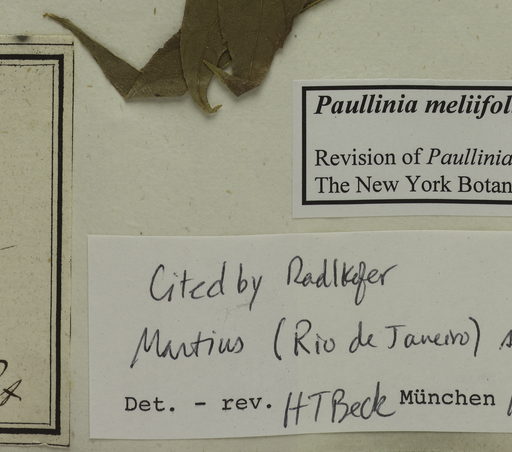 Paullinia meliifol
Revision of Paullinia
The New York Botan
Cited by Radlkofer
Martius (Rio de Janeiro)
Det. - rev. HTBeck München